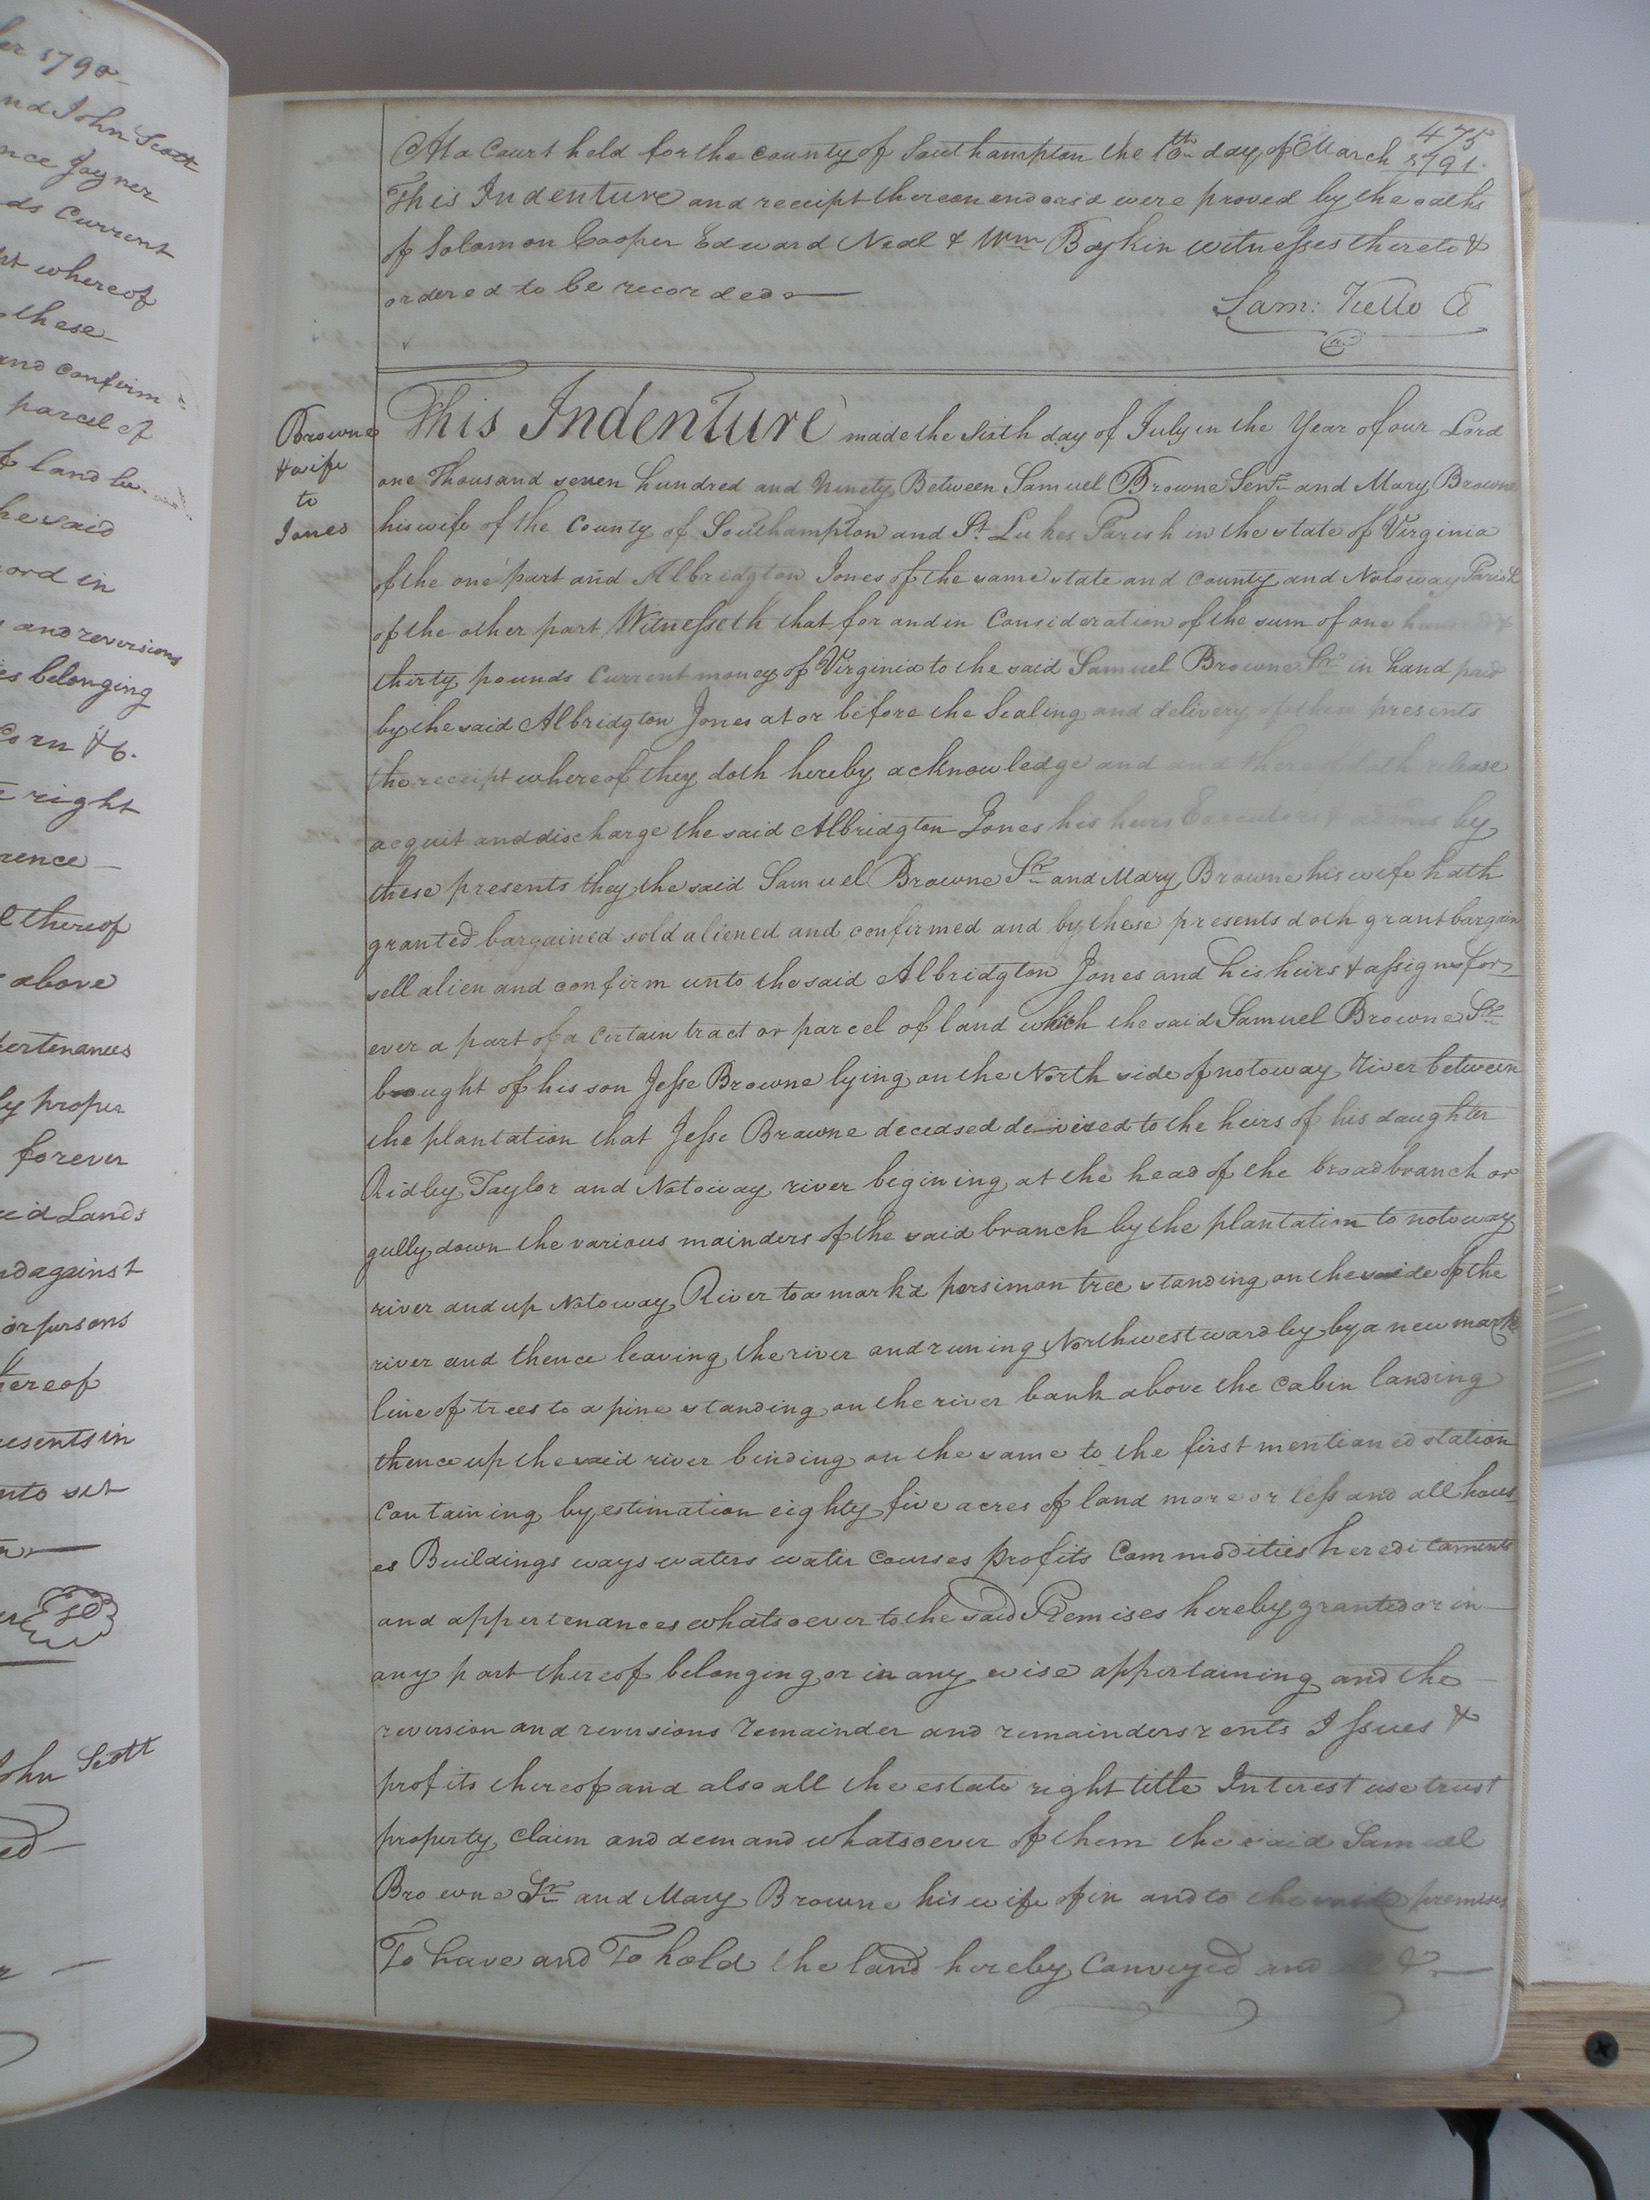 ber 1790
and John Scott
nce Joyner
ds Current
pt whereof
these
and confirm
parcel of
of land
he said
ord in
and reversions
es belonging
Corn &c.
right
rence
l thereof
above
pertenances
ly proper
forever
said Lands
nd against
or persons
hereof
resents in
nto set
John Scott
ed
475
At a Court held for the county of Southampton the 10th day of March 1791.
This Indenture and receipt thereon endorsd were proved by the oaths
of Solomon Cooper Edward Neal & Wm Boykin witnesses thereto &
ordered to be recorded
Sam: Kello C
Browne
& wife
to
Jones
This Indenture made the Sixth day of July in the Year of our Lord
one Thousand seven hundred and Ninety Between Samuel Browne Senr and Mary Browne
his wife of the County of Southampton and St. Lukes Parish in the state of Virginia
of the one part and Albridgton Jones of the same state and county and Notoway Parish
of the other part Witnesseth that for and in Consideration of the sum of one hundred &
thirty pounds Current money of Virginia to the said Samuel Browne Sr in hand paid
by the said Albridgton Jones at or before the Sealing and delivery of these presents
the receipt whereof they doth hereby acknowledge and and thereof doth release
acquit and discharge the said Albridgton Jones his heirs Executors & admrs by
these presents they the said Samuel Browne Sr and Mary Browne his wife hath
granted bargained sold aliened and confirmed and by these presents doth grant bargain
sell alien and confirm unto the said Albridgton Jones and his heirs & assigns for
ever a part of a certain tract or parcel of land which the said Samuel Browne Sr
brought of his son Jesse Browne lying on the North side of notoway river between
the plantation that Jesse Browne deceased devised to the heirs of his daughter
Ridley Taylor and Notoway river begining at the head of the broad branch or
gully down the various mainders of the said branch by the plantation to notoway
river and up Notoway River to a markd persimon tree standing on the side of the
river and thence leaving the river and runing Northwestwardly by a new mark
line of trees to a pine standing on the river bank above the Cabin landing
thence up the said river binding on the same to the first mentioned station
Containing by estimation eighty five acres of land more or less and all hous
es Buildings ways waters water courses profits Commodities hereditaments
and appertenances whatsoever to the said Premises hereby granted or in
any part thereof belonging or in any wise appertaining and the
reversion and reversions remainder and remainders rents Issues &
profits thereof and also all the estate right title Interest use trust
property claim and demand whatsoever of them the said Samuel
Browne Sr and Mary Browne his wife of in and to the said premises
To have and To hold the land hereby Conveyed and all &